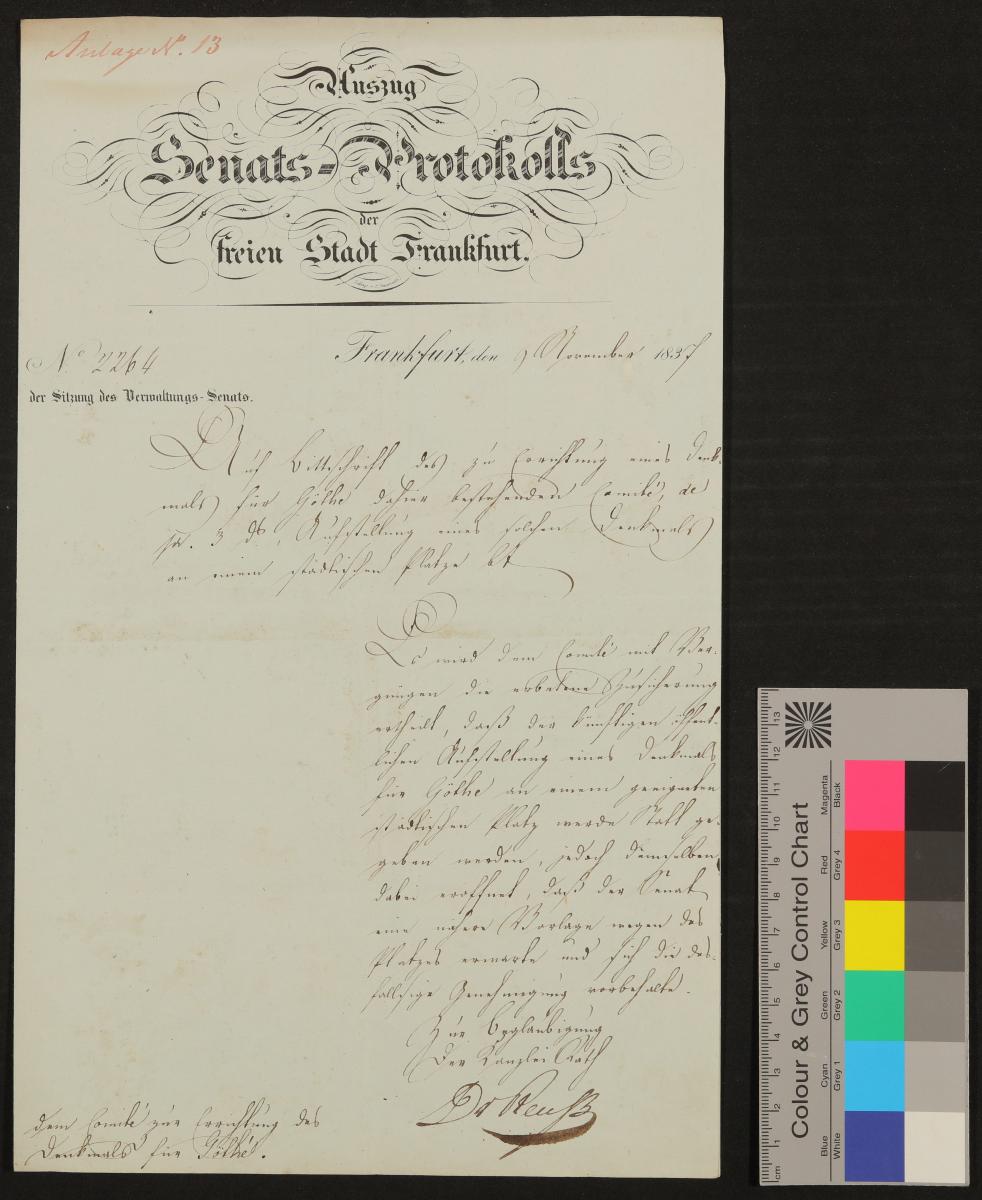 Anlage N°. 13
Auszug
Senats-Protokolls
der
freien Stadt Frankfurt.
N° 2264
Frankfurt, den 9 November 1837
der Sitzung des Verwaltungs-Senats.
Auf Bittschrift des zu Errichtung eines Denk-
mals für Göthe dahier bestehenden Comité, de
pr. 3 ds, Aufstellung eines solchen Denkmals
an einem städtischen Platze bt
Es wird dem Comité mit Ver-
gnügen die erbetene Zusicherung
ertheilt, daß der künftigen öffent-
lichen Aufstellung eines Denkmals
für Göthe an einem geeigneten
städtischen Platz werde Statt ge-
geben werden, jedoch demselben
dabei eröffnet, daß der Senat
eine nähere Vorlage wegen des
Platzes erwarte und sich die des-
fallsige Genehmigung vorbehalte.
Zur Beglaubigung
Der Kanzlei Rath
Dr Reuß
dem Comité zur Errichtung des
Denkmals für Göthe.
Colour & Grey Control Chart
Blue Cyan Green Yellow Red Magenta
White Grey 1 Grey 2 Grey 3 Grey 4 Black
cm 1 2 3 4 5 6 7 8 9 10 11 12 13